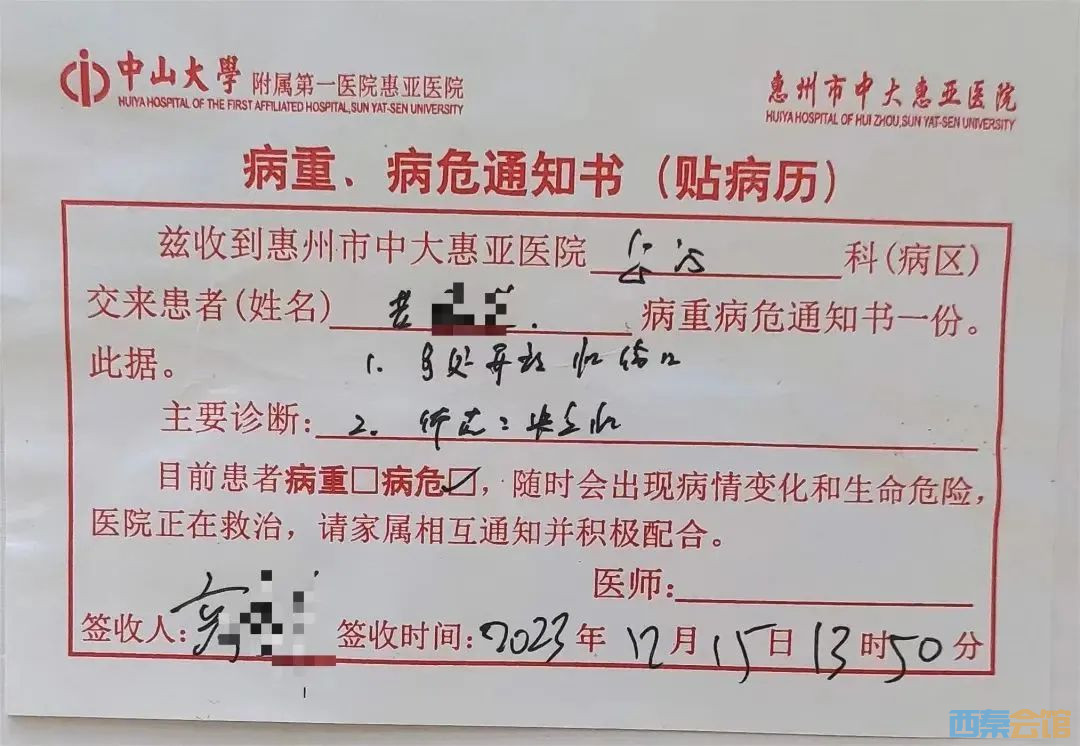 中山大學 附属第一医院惠亚医院
HUIYA HOSPITAL OF THE FIRST AFFILIATED HOSPITAL,SUN YAT-SEN UNIVERSITY
惠州市中大惠亚医院
HUIYA HOSPITAL OF HUI ZHOU,SUN YAT-SEN UNIVERSITY
病重、病危通知书（贴病历）
兹收到惠州市中大惠亚医院 急诊 科(病区)
交来患者(姓名) 病重病危通知书一份。
此据。 1. 多处开放
主要诊断: 2.
目前患者病重□病危☑，随时会出现病情变化和生命危险，
医院正在救治，请家属相互通知并积极配合。
医师:
签收人: 签收时间: 2023年12月15日13时50分
西秦会馆